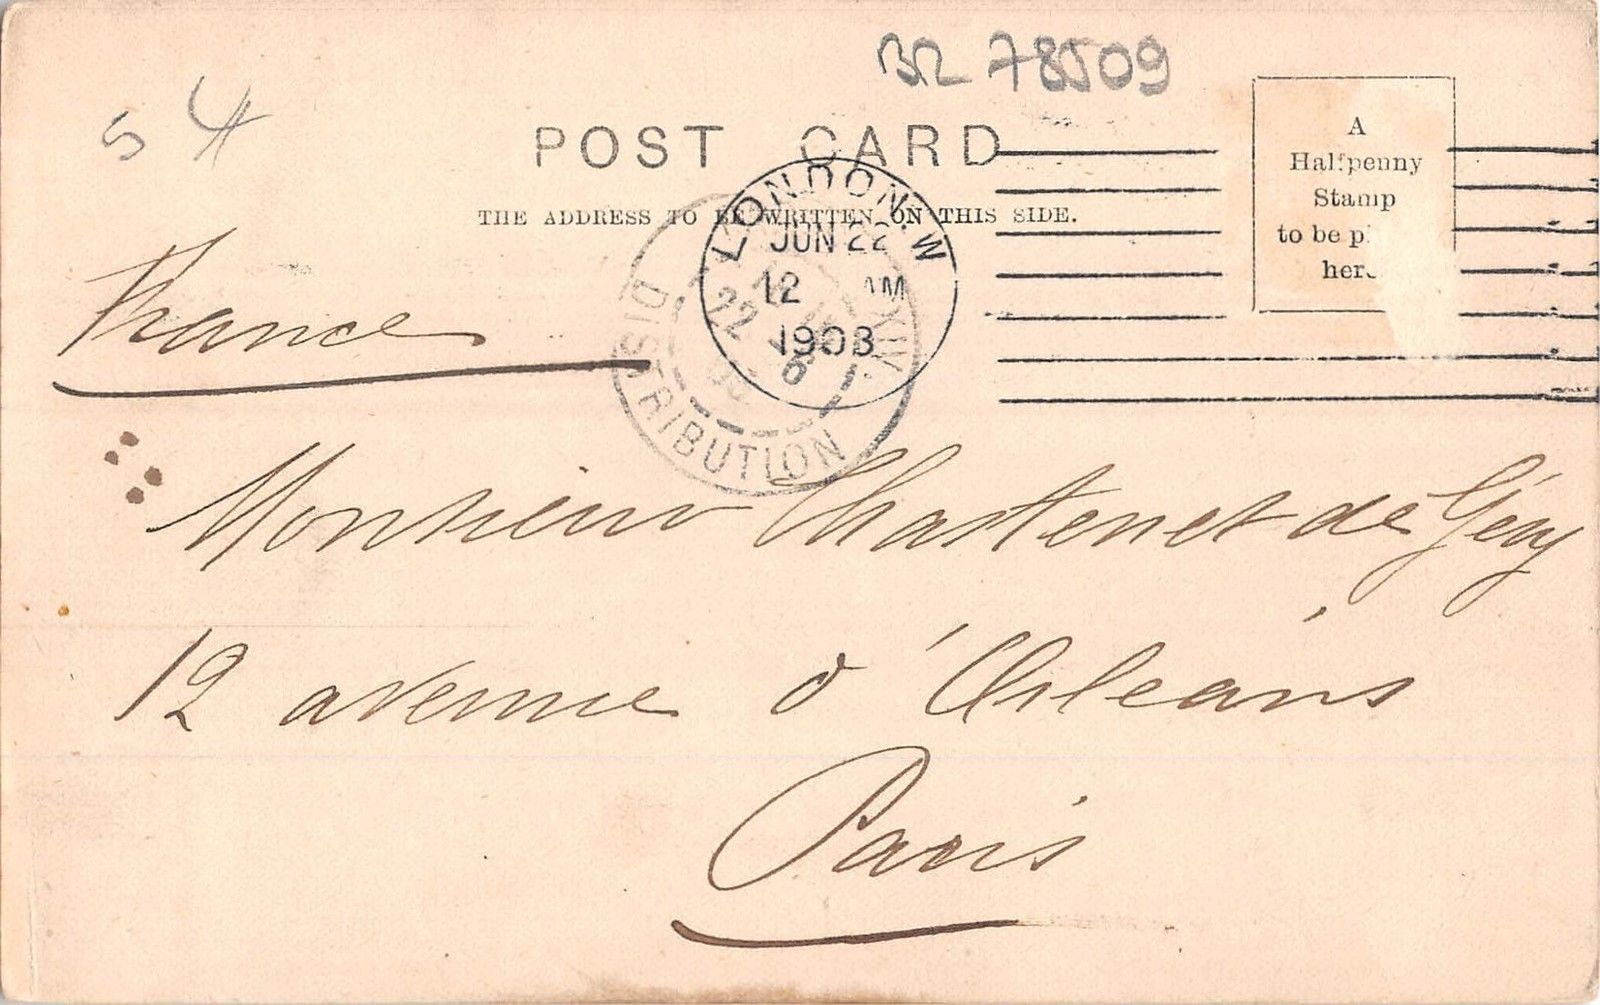 BR 78509
5 4
POST CARD
THE ADDRESS TO BE WRITTEN ON THIS SIDE.
A
Halfpenny
Stamp
to be p
her
LONDON. W
JUN 22
12 AM
1903
DISTRIBUTION
22
France
Monsieur Chastenet de Géry
12 avenue d'Orléans
Paris